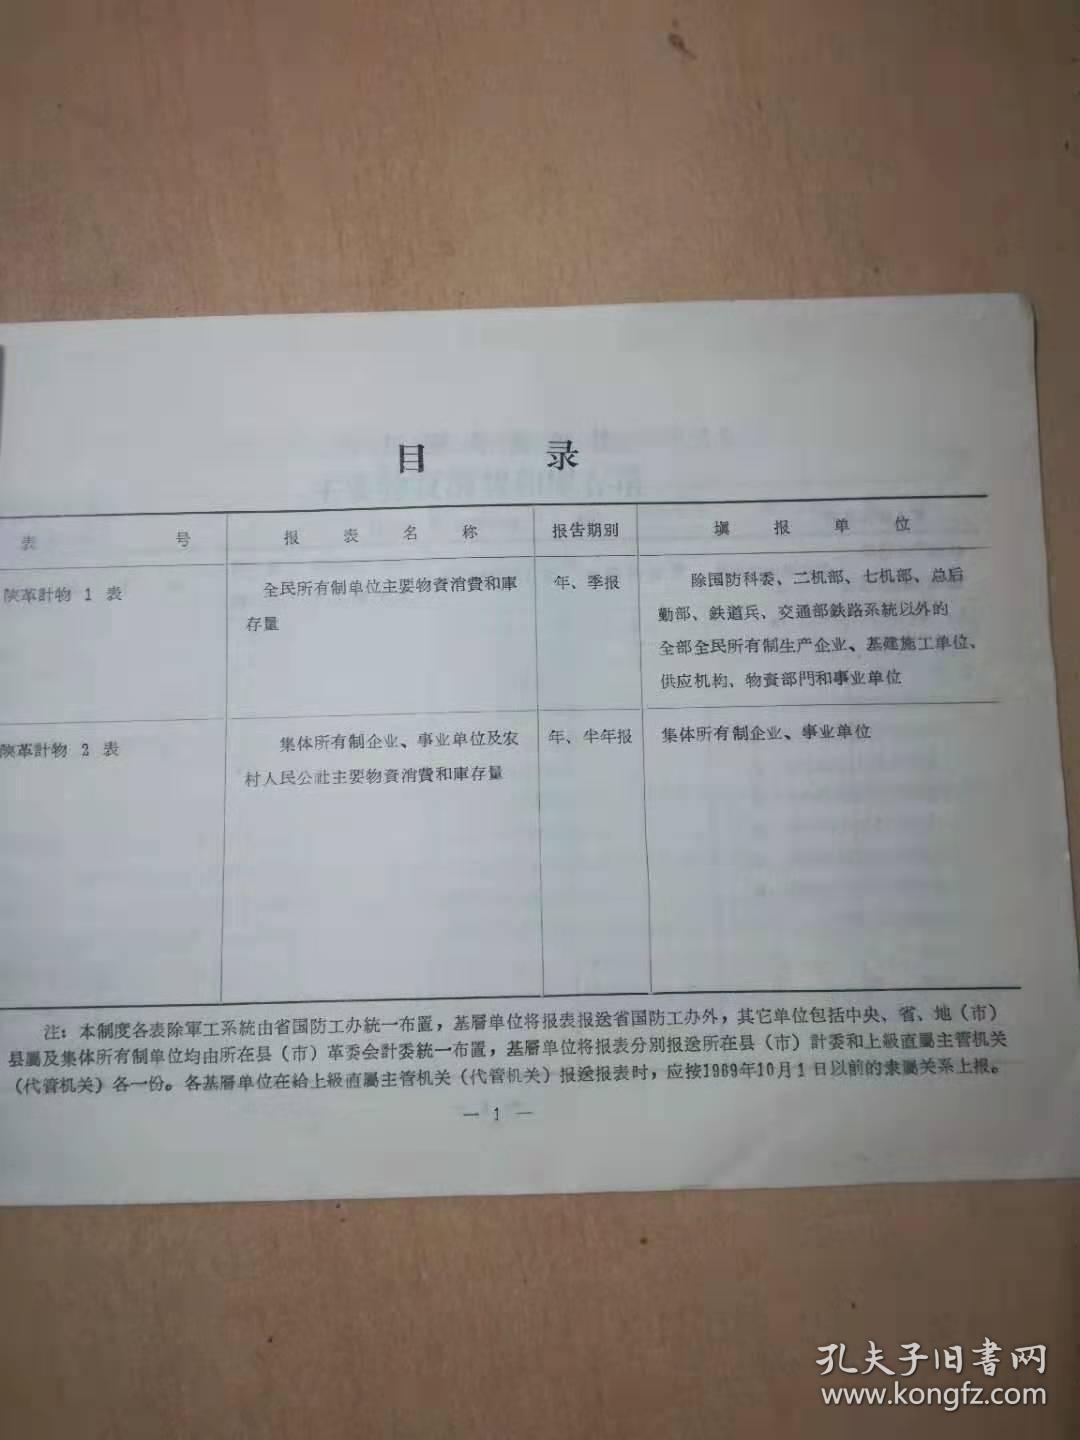 目 录
表 号 报 表 名 称 报告期別 填 报 单 位
陝革計物 1 表 全民所有制单位主要物資消費和庫 年、季报 除国防科委、二机部、七机部、总后
存量 勤部、鉄道兵、交通部鉄路系統以外的
全部全民所有制生产企业、基建施工单位、
供应机构、物資部門和事业单位
陝革計物 2 表 集体所有制企业、事业单位及农 年、半年报 集体所有制企业、事业单位
村人民公社主要物資消費和庫存量
注：本制度各表除軍工系統由省国防工办統一布置，基層单位将报表报送省国防工办外，其它单位包括中央、省、地（市）
县屬及集体所有制单位均由所在县（市）革委会計委統一布置，基層单位将报表分別报送所在县（市）計委和上級直屬主管机关
（代管机关）各一份。各基層单位在給上級直屬主管机关（代管机关）报送报表时，应按1969年10月1日以前的隶屬关系上报。
— 1 —
孔夫子旧書网
www.kongfz.com